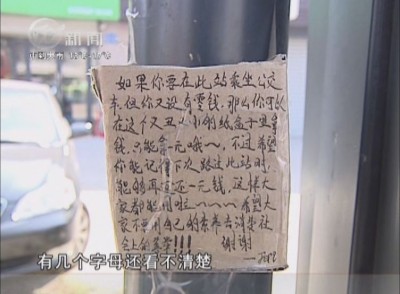 新闻
如果你要在此站乘坐公交
车,但你又没有零钱,那么你可以
在这个又丑又小的纸盒子里拿
钱,只能拿一元哦~,不过,希望
你能记得下次路过此站时
能够再还一元钱,这样大
家都能用啦~~~~希望大
家不要用自己的素养去满足社
会上的!!! 谢谢
有几个字母还看不清楚